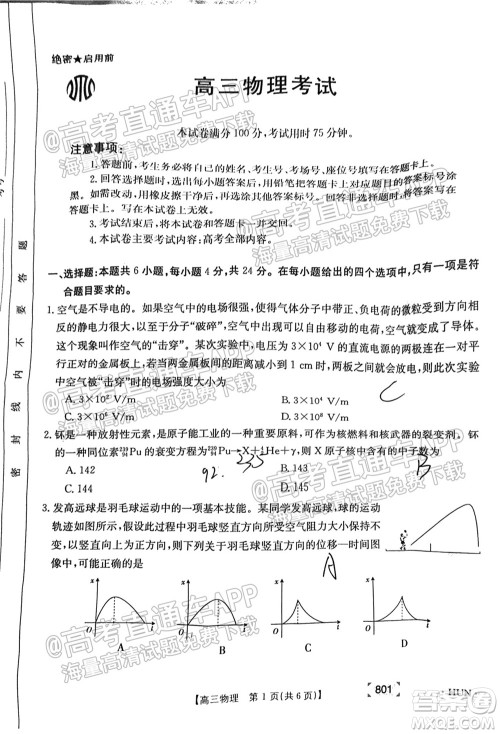 绝密★启用前
高三物理考试
本试卷满分100分,考试用时75分钟。
注意事项:
1. 答题前,考生务必将自己的姓名、考生号、考场号、座位号填写在答题卡上。
2. 回答选择题时,选出每小题答案后,用铅笔把答题卡上对应题目的答案标号涂
黑。如需改动,用橡皮擦干净后,再选涂其他答案标号。回答非选择题时,将答案写在
答题卡上。写在本试卷上无效。
3. 考试结束后,将本试卷和答题卡一并交回。
4. 本试卷主要考试内容:高考全部内容。
一、选择题:本题共6小题,每小题4分,共24分。在每小题给出的四个选项中,只有一项是符
合题目要求的。
1. 空气是不导电的。如果空气中的电场很强,使得气体分子中带正、负电荷的微粒受到方向相
反的静电力很大,以至于分子“破碎”,于是空气中出现了可以自由移动的电荷,空气变成了导
体,这个现象叫作空气的“击穿”。某次实验中,用3×10⁴ V的直流电源的两极连在一对平行
正对的金属板上,若当两金属板间的距离减小到1 cm时,两板之间就会放电,则此次实验
中空气被“击穿”时的电场强度大小为
C
A. 3×10² V/m
B. 3×10⁴ V/m
C. 3×10⁶ V/m
D. 3×10⁸ V/m
2. 钚是一种放射性元素,是原子能工业的一种重要原料,可作为核燃料和核武器的裂变剂。钚
的一种同位素²³⁹₉₄Pu的衰变方程为²³⁹₉₄Pu→X+⁴₂He+γ,则X原子核中含有的中子数为
92. 235
B
A. 142
B. 143
C. 144
D. 145
3. 发高远球是羽毛球运动中的一项基本技能。某同学发高远球,球的运动
轨迹如图所示,假设此过程中羽毛球竖直方向所受空气阻力大小保持不
变,以竖直向上为正方向,则下列关于羽毛球竖直方向的位移—时间图
像中,可能正确的是
A
x
O
t
A
x
O
t
B
x
O
t
C
x
O
t
D
【高三物理 第1页(共6页)】
801
HUN
密 封 线 内 不 要 答 题
@高考直通车APP
海量高清试题免费下载
@高考直通车APP
海量高清试题免费下载
@高考直通车APP
海量高清试题免费下载
@高考直通车APP
海量高清试题免费下载